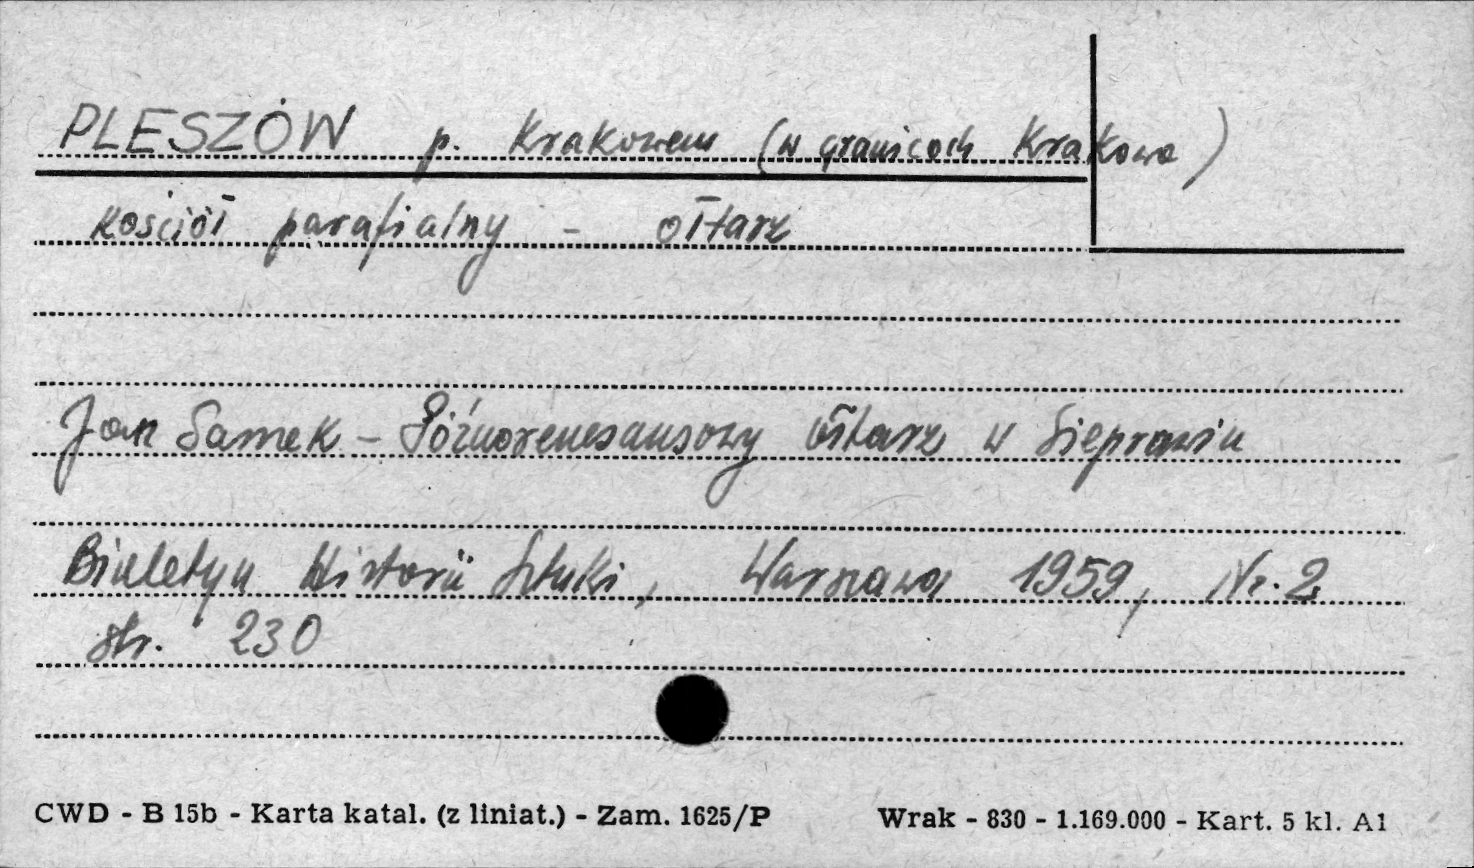 PLESZÓW p. Krakowem (w granicach Krakowa)
kościół parafialny - ołtarz
Jan Samek - Późnorenesansowy ołtarz w Sieprawiu
Biuletyn Historii Sztuki, Warszawa 1959, Nr. 2
str. 230
CWD - B 15b - Karta katal. (z liniat.) - Zam. 1625/P Wrak - 830 - 1.169.000 - Kart. 5 kl. A1